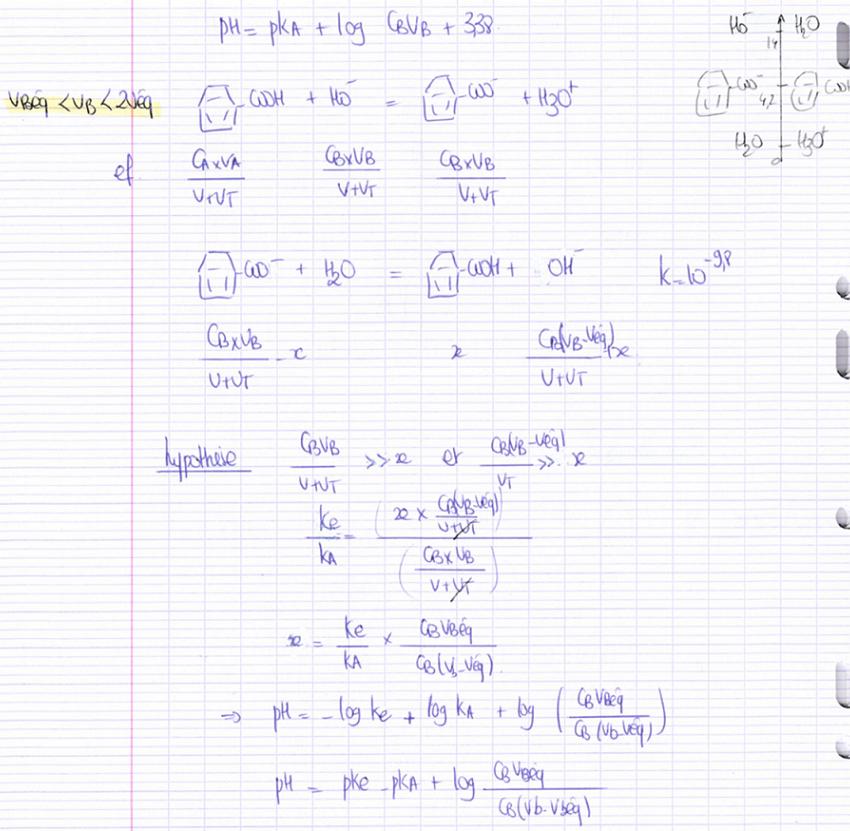 pH = pKA + log CBVB + 3,38
HO⁻ H2O
14
VBéq < VB < 2Véq -COOH + HO⁻ = -COO⁻ + H3O⁺
-COO⁻ 4,2 -COOH
H2O H3O⁺
0
ef CA×VA / V+VT CB×VB / V+VT CB×VB / V+VT
-COO⁻ + H2O = -COOH + OH⁻ K=10^-9,8
CB×VB / V+VT - x x CB(VB-Véq) / V+VT + x
hypothèse CBVB / V+VT >> x et CB(VB-Véq) / VT >> x
Ke / KA = ( x × CB(VB-Véq) / V+VT ) / ( CB×VB / V+VT )
x = Ke / KA × CBVBéq / CB(VB-Véq)
⇒ pH = -log Ke + log KA + log ( CBVBéq / CB(Vb-Véq) )
pH = pKe - pKA + log CBVBéq / CB(Vb-Vbéq)